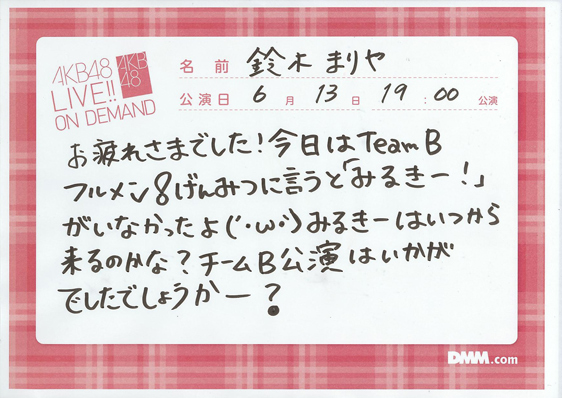 AKB48
LIVE!!
ON DEMAND
AKB
48
名前 鈴木まりや
公演日 6月13日 19:00公演
お疲れさまでした!今日はTeam B
フルメン8げんみつに言うと「みるきー!」
がいなかったよ(´・ω・`)みるきーはいつから
来るのかな?チームB公演はいかが
でしたでしょうかー?
DMM.com